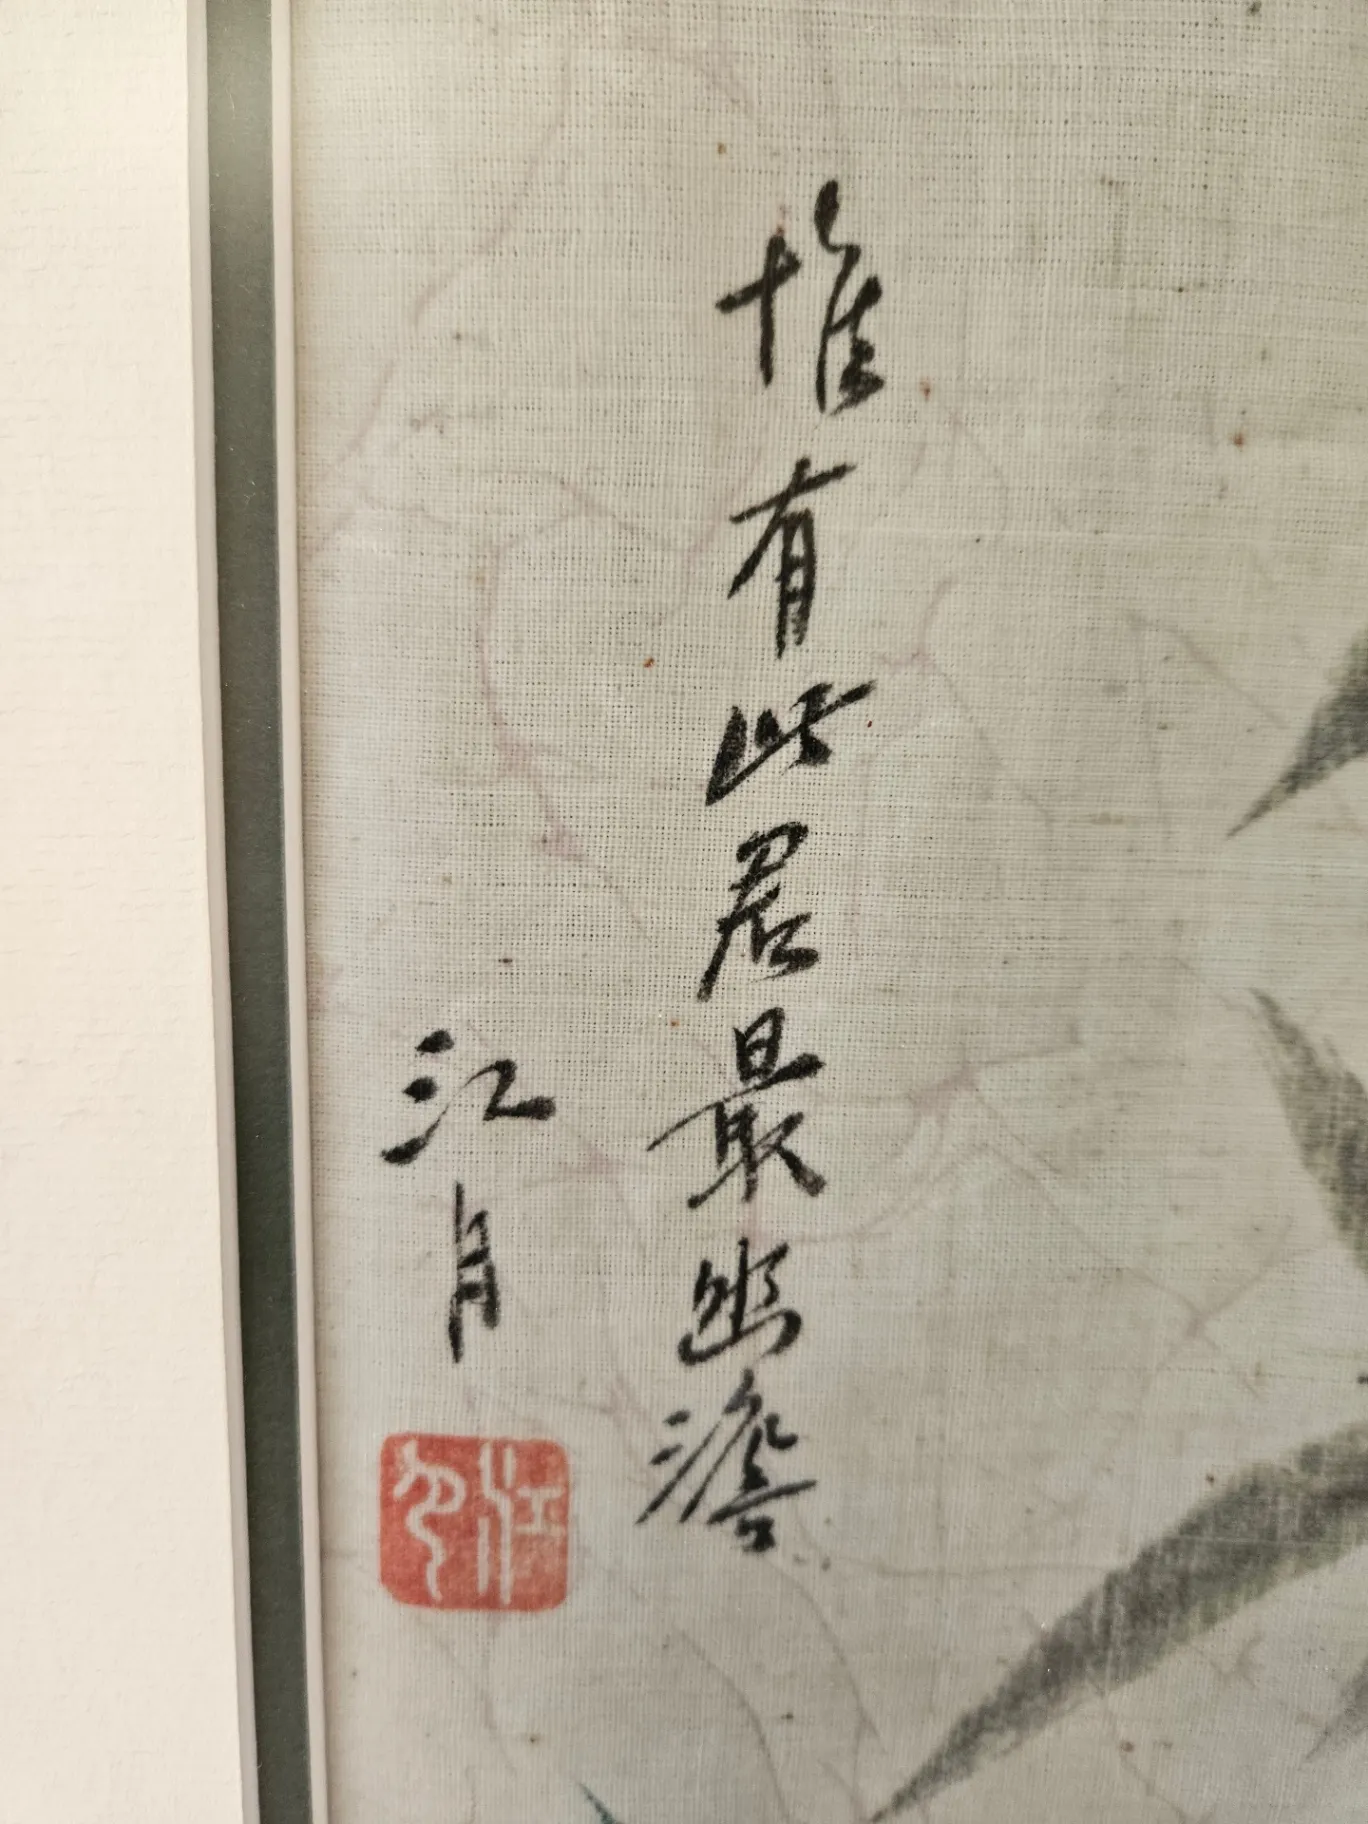 惟有此君最幽澹
江月
江月